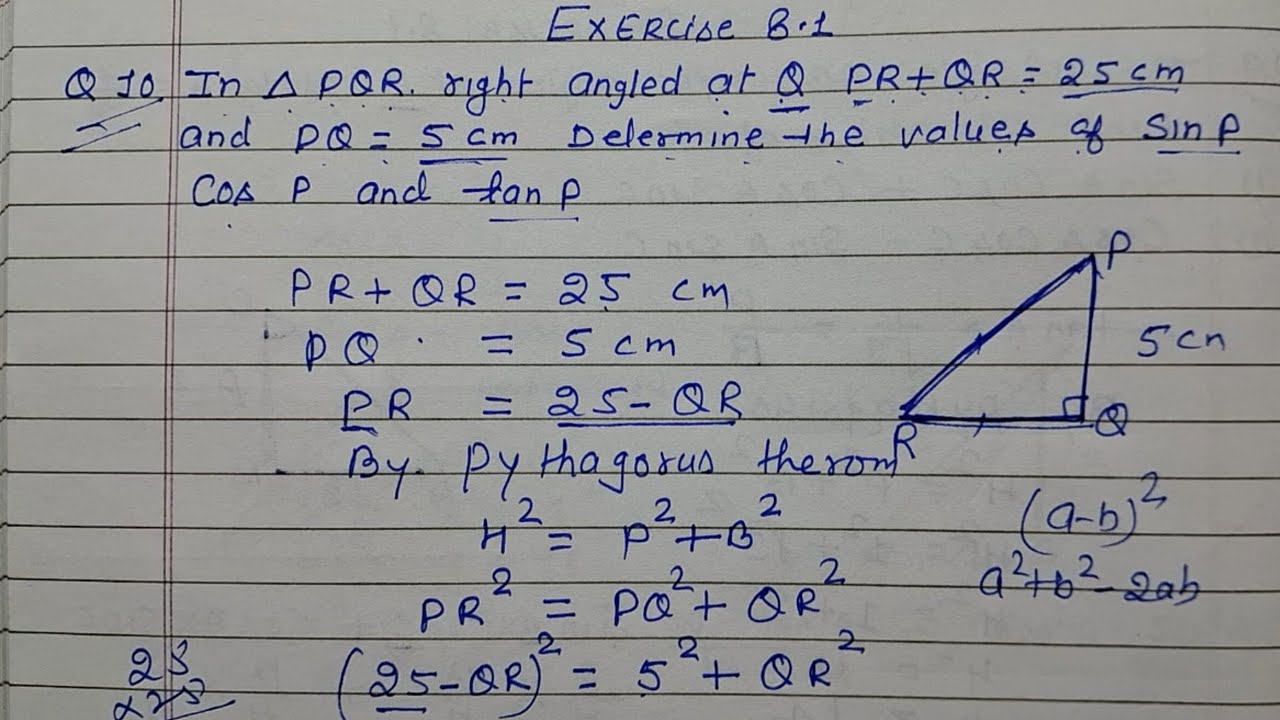 EXERCISE 8.1
Q 10 In Δ PQR. right angled at Q PR+QR = 25 cm
and PQ = 5 cm Determine the values of Sin P
Cos P and tan P
PR + QR = 25 cm
PQ = 5 cm
PR = 25 - QR
By. Pythagorus therom
H² = P² + B²
PR² = PQ² + QR²
(25 - QR)² = 5² + QR²
P
5 cm
Q
R
(a-b)²
a²+b²-2ab
25
x25